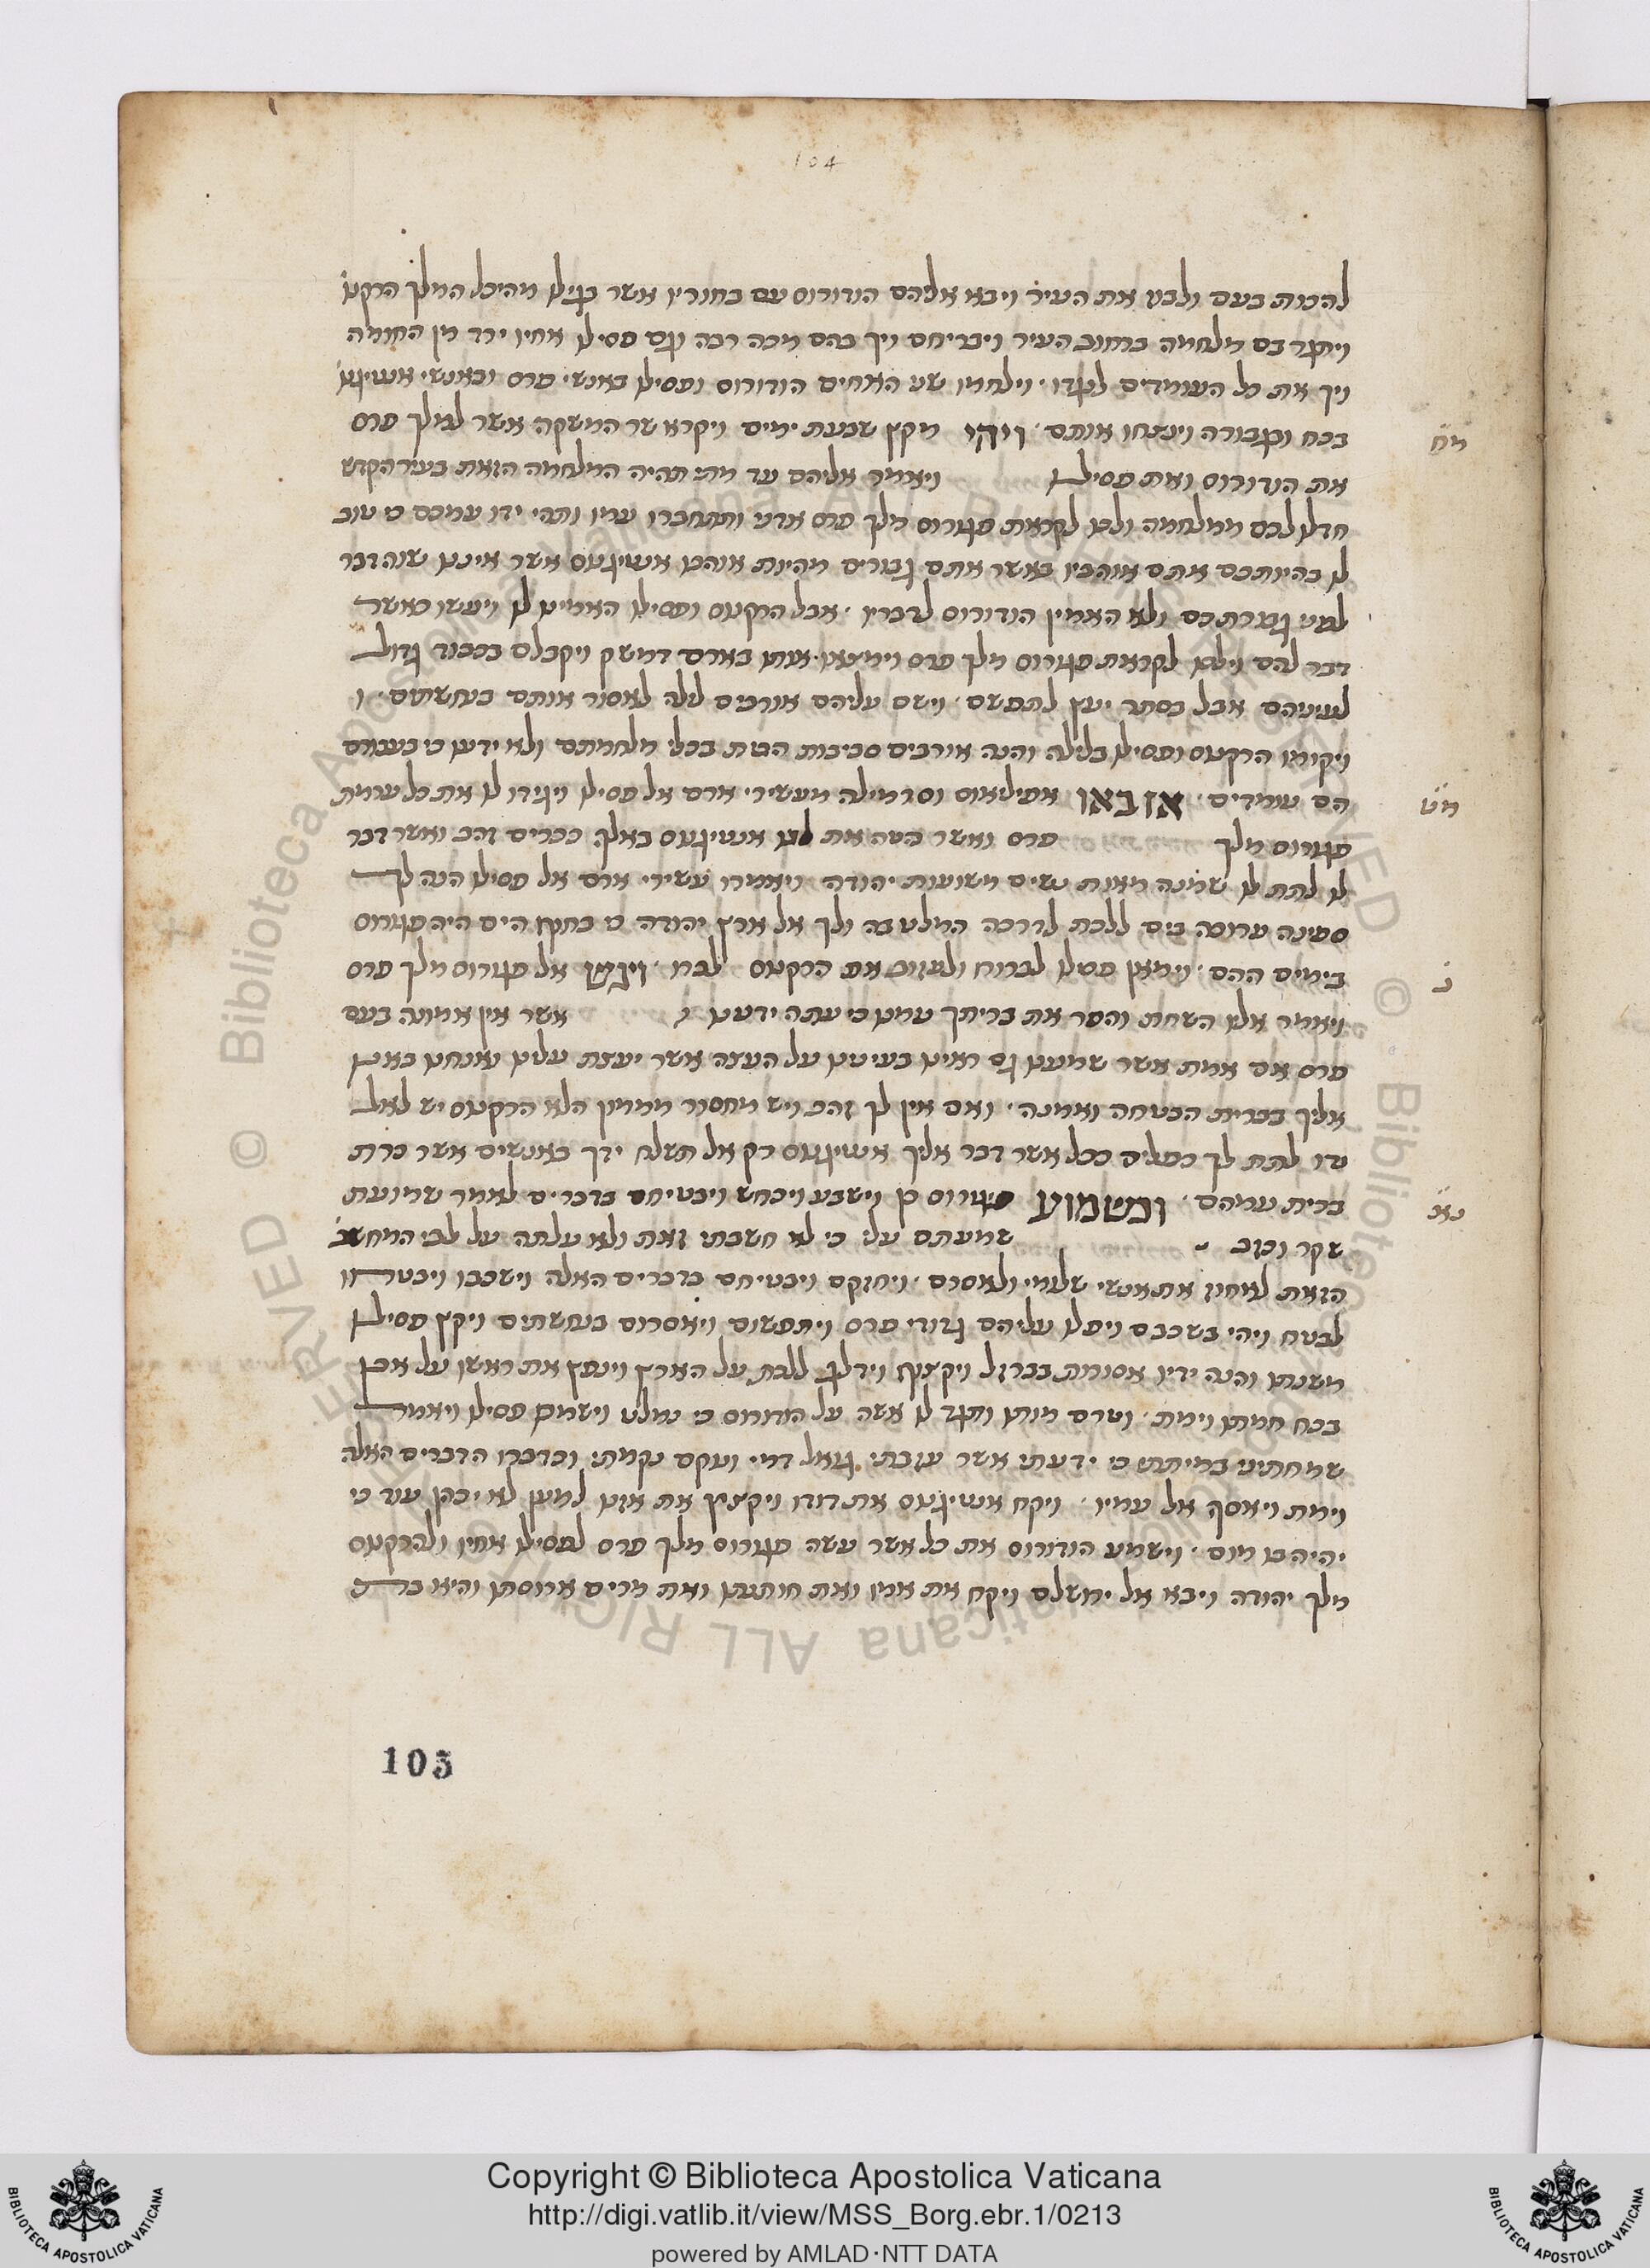 104
להכות בעם ולבוז את העיר ויבא אליהם הודורוס עם בחוריו אשר בגליל מהיכל המלך הרקנוס
ויתגר בם מלחמה ברחוב העיר ויבריחם ויך בהם מכה רבה וגם פסילו אחיו ירד מן החומה
ויך את כל העומדים לנגדו וילחמו שני האחים הודורוס ופסילו באנשי פרס ובאנשי אנטיגנוס
בכח ובגבורה וינצחו אותם ויהי מקץ שבעת ימים ויקרא שר המשקה אשר למלך פרס
מח
את הודורוס ואת פסילו ויאמר אליהם עד מתי תהיה המלחמה הזאת בעיר הקדש
חדלו לכם ממלחמה ולכו לקראת פגורוס מלך פרס ותתחברו עמו ותהי ידו עמכם כי טוב
לו בהיותכם אתם אוהביו באשר אתם גבורים מהיות אוהבו אנטיגנוס אשר איננו שוה דבר
לפני גבורתכם ולא האמין הודורוס לדבריו אבל הרקנוס ופסילו האמינו לו ויעשו כאשר
דבר להם וילכו לקראת פגורוס מלך פרס וימצאו אותו בארם דמשק ויקבלם בכבוד גדול
לעיניהם אבל בסתר יעץ לתפשם וישם עליהם אורבים לילה לאסור אותם בנחשתים
ויקומו הרקנוס ופסילו בלילה והנה אורבים סביבות הבית בכלי מלחמתם ולא ידעו כי בעבורם
הם עומדים אז באו אפיליאוס וסרמילה מעשירי ארם אל פסילו ויגידו לו את כל ערמת
מט
פגורוס מלך פרס ואשר הטה את לבו אנטיגנוס באלף ככרים זהב ואשר דבר
לו לתת לו שמנה מאות נשים משועות יהודה ויאמרו עשירי ארם אל פסילו הנה לך
ספינה ערוכה בים ללכת לדרכה המלט בה ולך אל ארץ יהודה כי בחוף הים היה פגורוס
בימים ההם וימאן פסילו לברוח ולעזוב את הרקנוס לבדו ויגש אל פגורוס מלך פרס
נ
ויאמר אליו השחת והפר את בריתך עמנו כי עתה ידענו אשר אין אמונה בעם
פרס אם אמת אשר שמענו גם ראינו בעינינו על העצה אשר יעצת עלינו אנחנו באנו
אליך בברית הבטחה ואמנה ואם אין לך זהב ויש מחסור ממון הלא הרקנוס יש לאל
ידו לתת לך כפלים ככל אשר דבר אליך אנטיגנוס רק אל תשלח ידך באנשים אשר כרת
ברית עמהם ומשמוע פגורוס כן וישבע ויכחש ויבטיחם בדברים לאמר שמועת
נא
שקר וכזב שמעתם עלי כי לא חשבתי זאת ולא עלתה על לבי המחשבה
הזאת לאחוז את אנשי שלומי ולאסרם ויחזקם ויבטיחם בדברים האלה וישכבו ויבטחו
לבטח ויהי בשכבם ויפלו עליהם גדודי פרס ויתפשום ויאסרום בנחשתים ויקץ פסילו
משנתו והנה ידיו אסורות בברזל ויקצוף וידלג ללכת על הארץ וינפץ את ראשו על אבן
בכח חמתו וימת וטרם מותו ותגד לו אשה על הודורוס כי נמלט וישמח פסילו ויאמר
שמחתיני במיתתי כי ידעתי אשר עזבתי גואל דמי ונוקם נקמתי וכדברו הדברים האלה
וימת ויאסף אל עמיו ויקח אנטיגנוס את דודו ויקצץ את אזנו למען לא יכהן עוד כי
יהיה בו מום וישמע הודורוס את כל אשר עשה פגורוס מלך פרס לפסילו אחיו ולהרקנוס
מלך יהודה ויבא אל ירושלם ויקח את אמו ואת חותנתו ואת מרים ארוסתו והיא בת
105
Copyright © Biblioteca Apostolica Vaticana
http://digi.vatlib.it/view/MSS_Borg.ebr.1/0213
powered by AMLAD·NTT DATA